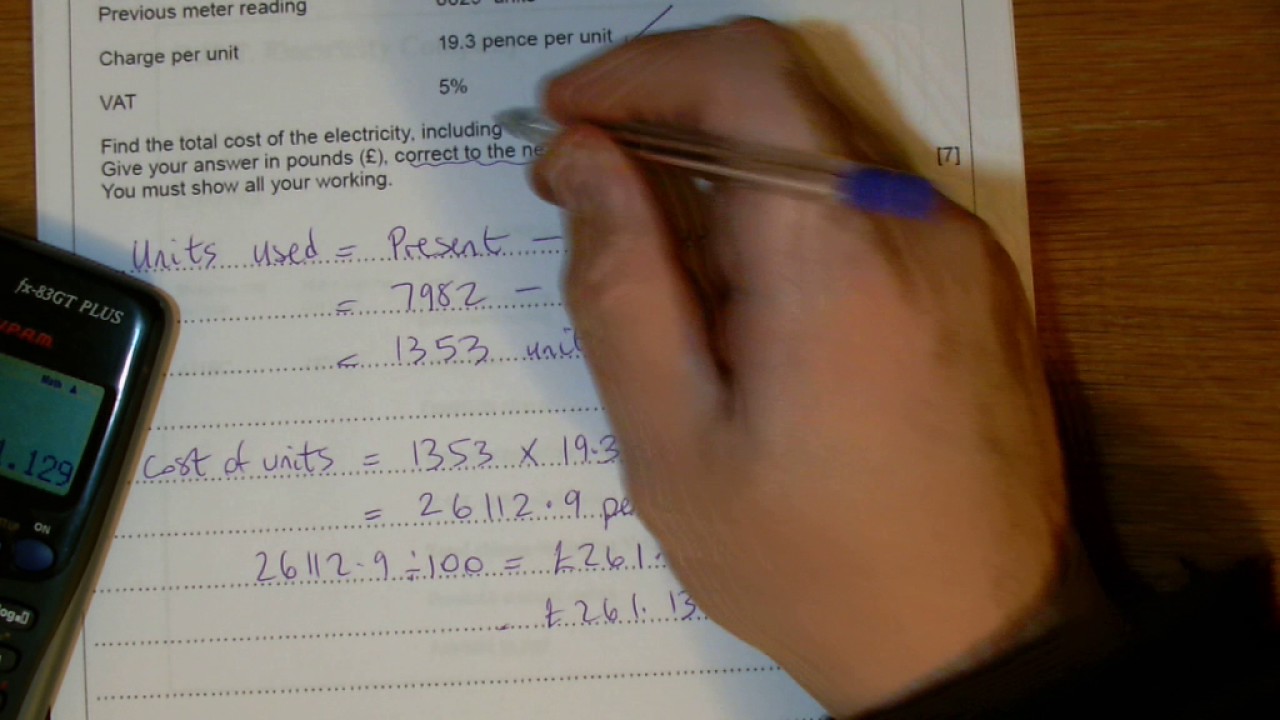 Previous meter reading
Charge per unit 19.3 pence per unit
VAT 5%
Find the total cost of the electricity, including
Give your answer in pounds (£), correct to the ne
[7]
You must show all your working.
Units used = Present -
= 7982 -
= 1353 unit
Cost of units = 1353 × 19.3
= 26112.9 pe
26112.9 ÷ 100 = £261.
£261.13
fx-83GT PLUS
Math
.129
ON